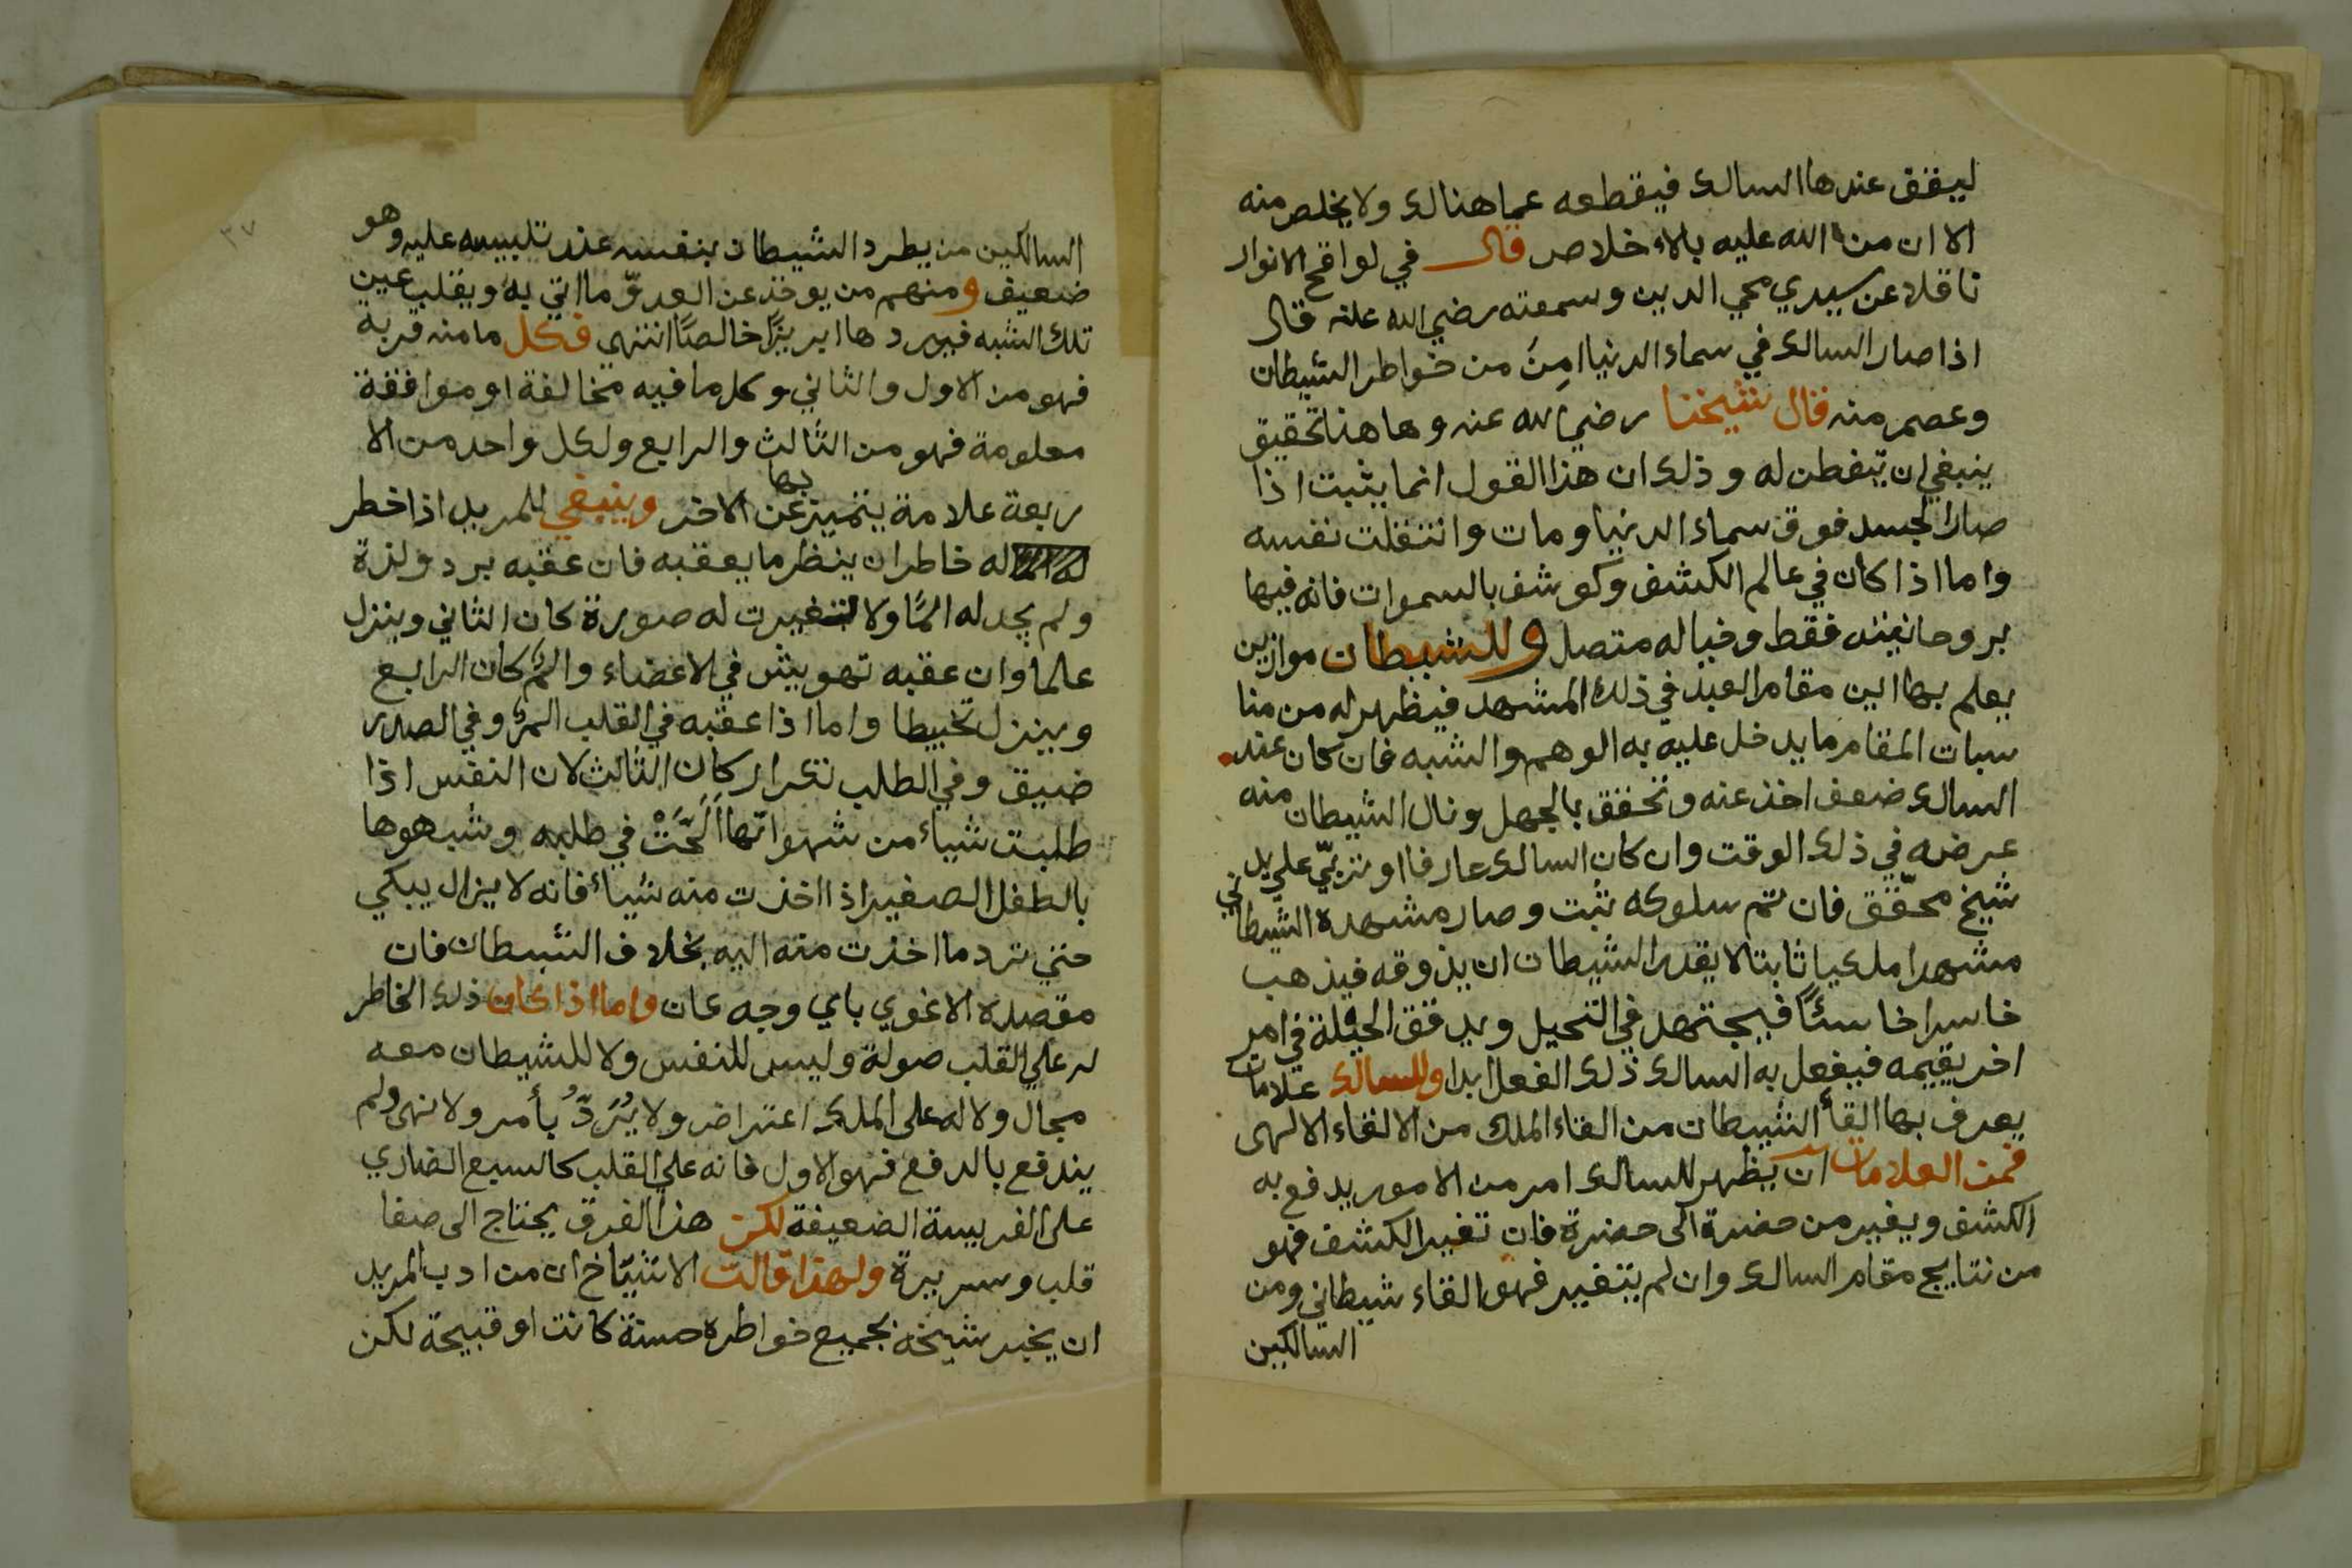 ليقف عندها السالك فيقطعه عما هنالك ولا يخلص منه
الا ان من الله عليه بالاءخلاص قال في لواقح الانوار
ناقلا عن سيدي محي الدين وسمعته رضي الله عنه قال
اذا صار السالك في سماء الدنيا امِنَ من خواطر الشيطان
وعصم منه قال شيخنا رضي الله عنه وهاهنا تحقيق
ينبغي ان يتفطن له وذلك ان هذا القول انما يثبت اذا
صار الجسد فوق سماء الدنيا ومات وانتقلت نفسه
واما اذا كان في عالم الكشف وكوشف بالسموات فانه فيها
بروحانيته فقط وخياله متصل وللشيطان موازين
يعلم بها اين مقام العبد في ذلك المشهد فيظهر له من منا
سبات المقام ما يدخل عليه به الوهم والشبه فان كان عند
السالك ضعف اخذ عنه وتحقق بالجهل ونال الشيطان منه
عرضه في ذلك الوقت وان كان السالك عارفا او تربّي علي يد
شيخ محقّق فان تم سلوكه ثبت وصار مشهده الشيطاني
مشهدا ملكيا ثابتا لا يقدر الشيطان ان يذوقه فيذهب
خاسرا خاسئًا فيجتهد في التحيل ويدقق الحيلة في امر
اخر يقيمه فيفعل به السالك ذلك الفعل ابدا وللسالك علامات
يعرف بها القأ الشيطان من القاء الملك من الالقاء الالهى
فمن العلامات ان يظهر للسالك امر من الامور يدفع به
الكشف ويغير من حضرة الى حضرة فان تغير الكشف فهو
من نتايج مقام السالك وان لم يتغير فهو القاء شيطاني ومن
السالكين
٣٧
السالكين من يطرد الشيطان بنفسه عند تلبيسه عليه وهو
ضعيف ومنهم من يوخذ عن العدوّ ما اتي به ويقلب عين
تلك الشبه فيردها ابريزًا خالصًا انتهى فكل ما منه قربة
فهو من الاول والثاني وكل ما فيه مخالفة او موافقة
معلومة فهو من الثالث والرابع ولكل واحد من الا
ربعة علامة يتميز بها عن الاخر وينبغي للمريد اذا خطر
له خاطر ان ينظر ما يعقبه فان عقبه برد ولذة
ولم يجد له المًا ولا تغيرت له صورة كان الثاني وينزل
علما وان عقبه تهويش في الاعضاء والم كان الرابع
وينزل تخبيطا واما اذا عقبه في القلب الم وفي الصدر
ضيق وفي الطلب تكرار كان الثالث لان النفس اذا
طلبت شياء من شهواتها اَلَحَّتْ في طلبه وشبهوها
بالطفل الصغير اذا اخذت منه شياء فانه لا يزال يبكي
حتي ترد ما اخذت منه اليه بخلاف الشيطان فان
مقصده الاغوي باي وجه كان واما اذا كان ذلك الخاطر
له علي القلب صولة وليس للنفس ولا للشيطان معه
مجال ولا له على الملك اعتراض ولا يُرَدُّ بأمر ولا نهى ولم
يندفع بالدفع فهو الاول فانه علي القلب كالسبع الضاري
على الفريسة الضعيفة لكن هذا الفرق يحتاج الى صفا
قلب وسريرة ولهذا قالت الاشيّاخ ان من ادب المريد
ان يخبر شيخه بجميع خواطره حسنة كانت او قبيحة لكن